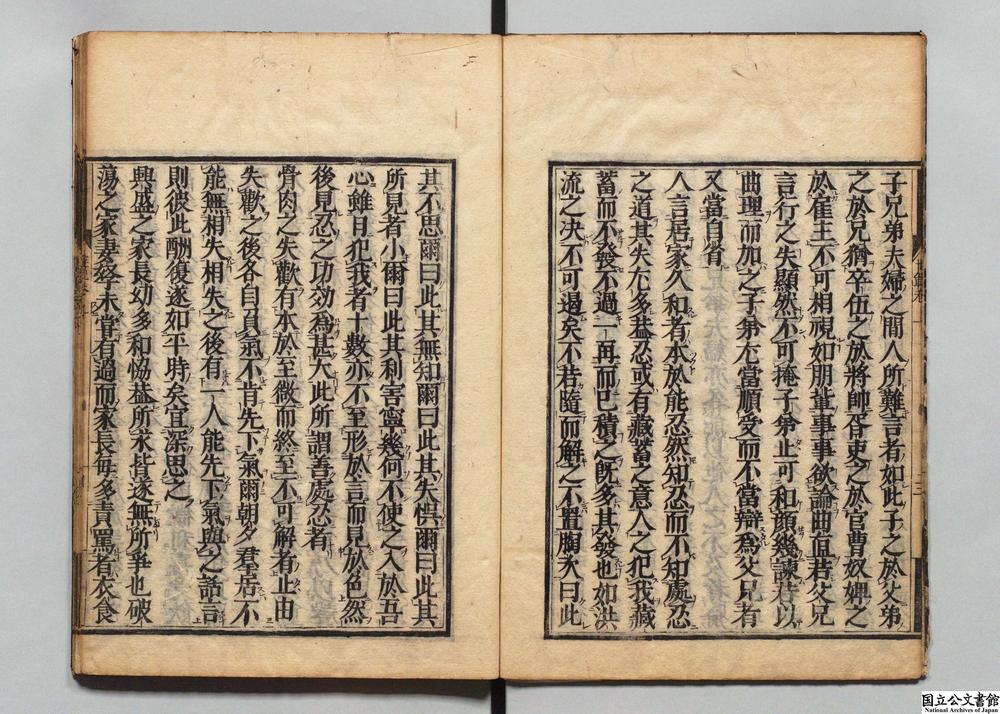 子兄弟夫婦之間人所難言者如此子之於父弟
之於兄猶卒伍之於將帥胥吏之於官曹奴婢之
於雇主不可相視如朋輩事事欲論曲直若父兄
言行之失顯然不可掩子弟止可和顔幾諫若以
曲理而加之子弟尤當順受而不當辯爲父兄者
又當自省
人言居家久和者本於能忍然知忍而不知處忍
之道其失尤多蓋忍或有藏蓄之意人之犯我藏
蓄而不發不過一再而已積之既多其發也如洪
流之決不可遏矣不若隨而解之不置胸次曰此
其不思爾曰此其無知爾曰此其失悞爾曰此其
所見者小爾曰此其利害寧幾何不使之入於吾
心雖日犯我者十數亦不至形於言而見於色然
後見忍之功効爲甚大此所謂善處忍者
骨肉之失歡有本於至微而終至不可解者止由
失歡之後各自負氣不肯先下氣爾朝夕羣居不
能無相失相失之後有一人能先下氣與之話言
則彼此酬復遂如平時矣宜深思之
興盛之家長幼多和恊蓋所求皆遂無所爭也破
蕩之家妻孥未嘗有過而家長毎多責罵者衣食
国立公文書館
National Archives of Japan